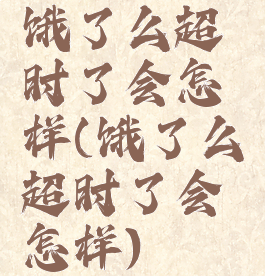 饿了么超
时了会怎
样(饿了么
超时了会
怎样)